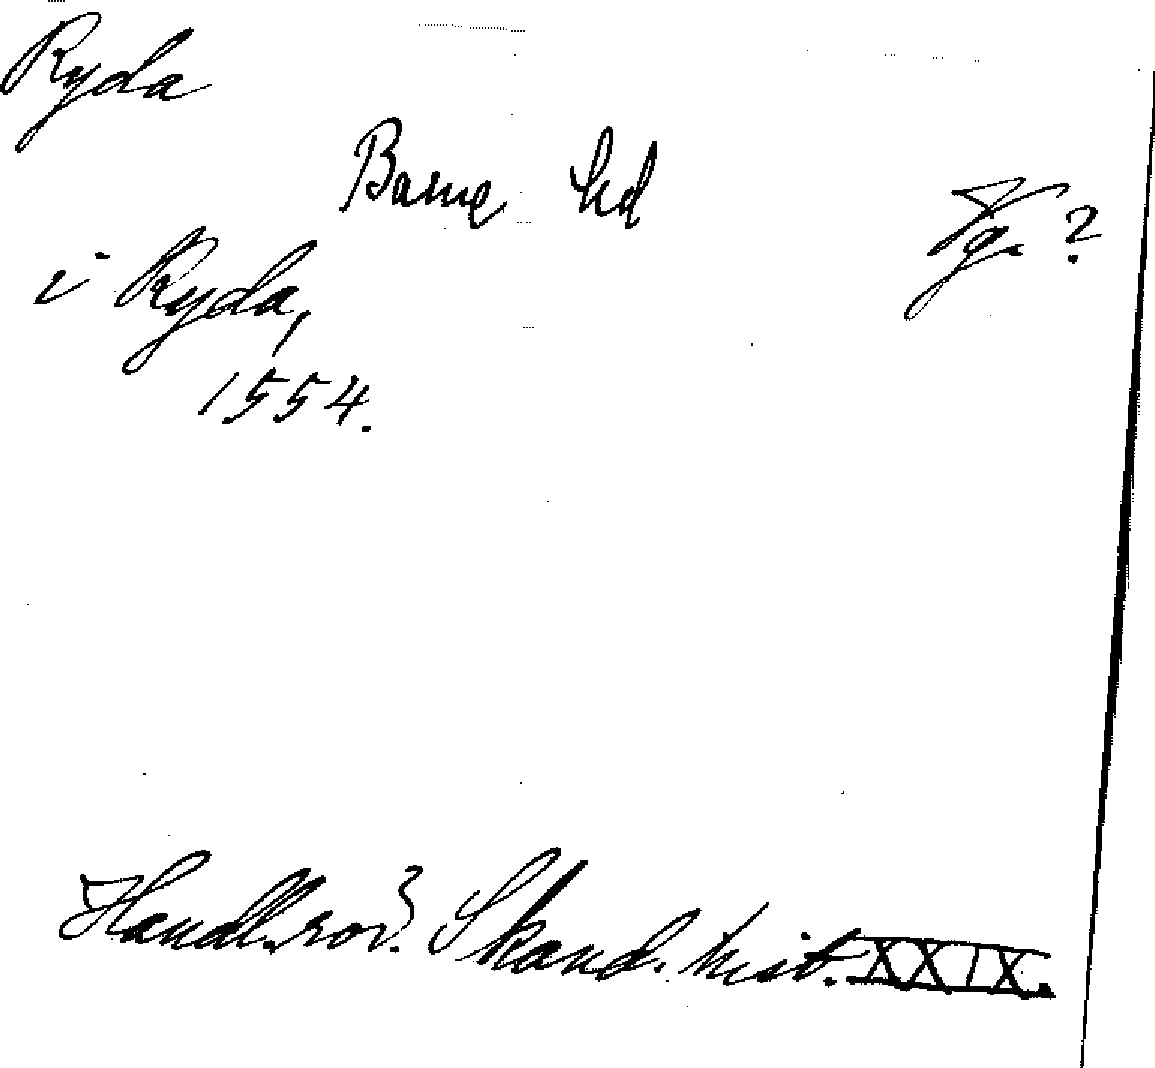 Ryda
Barne hd
Vg. ?
i Ryda,
1554.
Handl. rör. Skand. hist. XXIX.